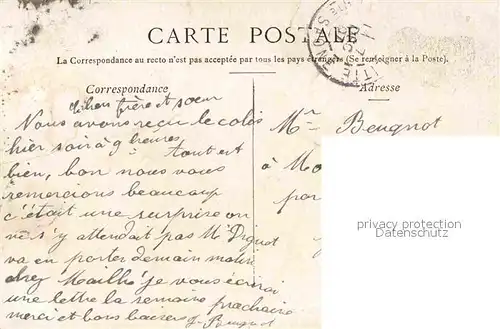 CARTE POSTALE
La Correspondance au recto n'est pas acceptée par tous les pays étrangers (Se renseigner à la Poste).
Correspondance
Adresse
frère et sœur
Nous avons reçu le colis
hier soir à 9 heures, tout est
bien, bon nous vous
remercions beaucoup
c'était une surprise on
ne s'y attendait pas Mr
va en porter demain matin
chez je vous écrirai
une lettre la semaine prochaine
merci et bons baisers Beugnot
Mr Beugnot
à
privacy protection
Datenschutz